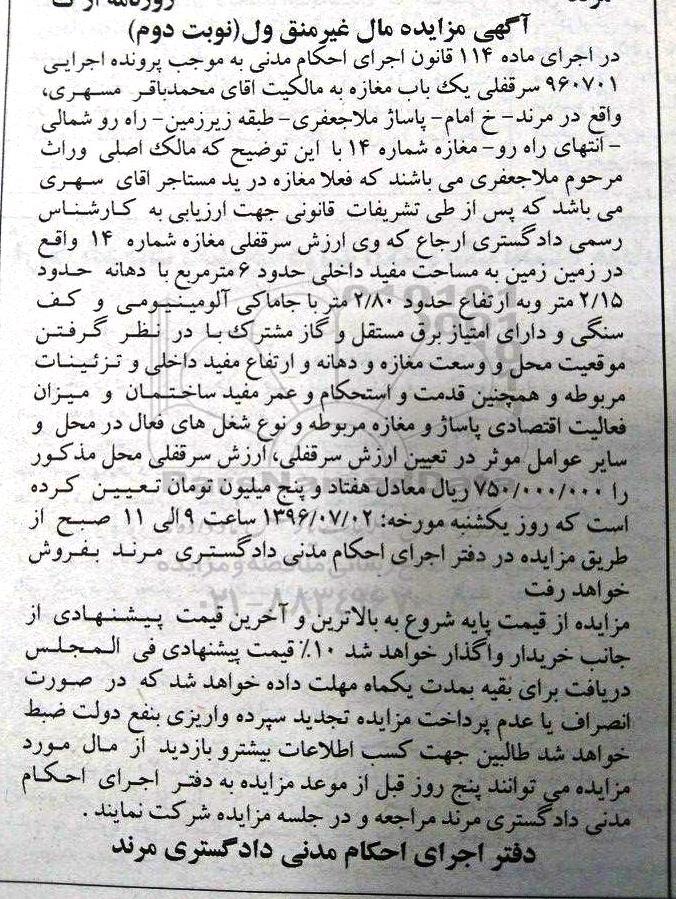 مرند
آگهی مزایده مال غیرمنق ول(نوبت دوم)
در اجرای ماده ۱۱۴ قانون اجرای احکام مدنی به موجب پرونده اجرایی
۹۶۰۷۰۱ سرقفلی یک باب مغازه به مالکیت اقای محمدباقر مسهری،
واقع در مرند- خ امام- پاساژ ملاجعفری- طبقه زیرزمین- راه رو شمالی
- انتهای راه رو- مغازه شماره ۱۴ با این توضیح که مالک اصلی وراث
مرحوم ملاجعفری می باشند که فعلا مغازه در ید مستاجر اقای سهری
می باشد که پس از طی تشریفات قانونی جهت ارزیابی به کارشناس
رسمی دادگستری ارجاع که وی ارزش سرقفلی مغازه شماره ۱۴ واقع
در زمین زمین به مساحت مفید داخلی حدود ۶ مترمربع با دهانه حدود
۲/۱۵ متر وبه ارتفاع حدود ۲/۸۰ متر با جاماکی آلومینیومی و کف
سنگی و دارای امتیاز برق مستقل و گاز مشترک با در نظر گرفتن
موقعیت محل و وسعت مغازه و دهانه و ارتفاع مفید داخلی و تزئینات
مربوطه و همچنین قدمت و استحکام و عمر مفید ساختمان و میزان
فعالیت اقتصادی پاساژ و مغازه مربوطه و نوع شغل های فعال در محل و
سایر عوامل موثر در تعیین ارزش سرقفلی، ارزش سرقفلی محل مذکور
را ۷۵۰/۰۰۰/۰۰۰ ریال معادل هفتاد و پنج میلیون تومان تعیین کرده
است که روز یکشنبه مورخه: ۱۳۹۶/۰۷/۰۲ ساعت ۹ الی ۱۱ صبح از
طریق مزایده در دفتر اجرای احکام مدنی دادگستری مرند بفروش
خواهد رفت
مزایده از قیمت پایه شروع به بالاترین و آخرین قیمت پیشنهادی از
جانب خریدار واگذار خواهد شد ۱۰٪ قیمت پیشنهادی فی المجلس
دریافت برای بقیه بمدت یکماه مهلت داده خواهد شد که در صورت
انصراف یا عدم پرداخت مزایده تجدید سپرده واریزی بنفع دولت ضبط
خواهد شد طالبین جهت کسب اطلاعات بیشترو بازدید از مال مورد
مزایده می توانند پنج روز قبل از موعد مزایده به دفتر اجرای احکام
مدنی دادگستری مرند مراجعه و در جلسه مزایده شرکت نمایند .
دفتر اجرای احکام مدنی دادگستری مرند